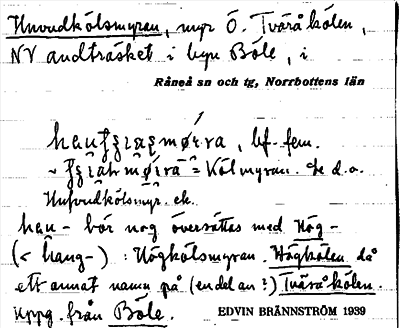 Huvudkölsmyran, myr Ö. Tväråkölen,
NV andträsket i byn Böle, i
Råneå sn och tg, Norrbottens län
bf. fem.
= Kölmyran. Se d.o.
Hufvudkölsmyr. ek.
han- bör nog översättas med Hög-
(< hang-) : Högkölsmyran. Högkölen då
ett annat namn på (en del av?) Tväråkölen.
Uppg. från Böle.
EDVIN BRÄNNSTRÖM 1939